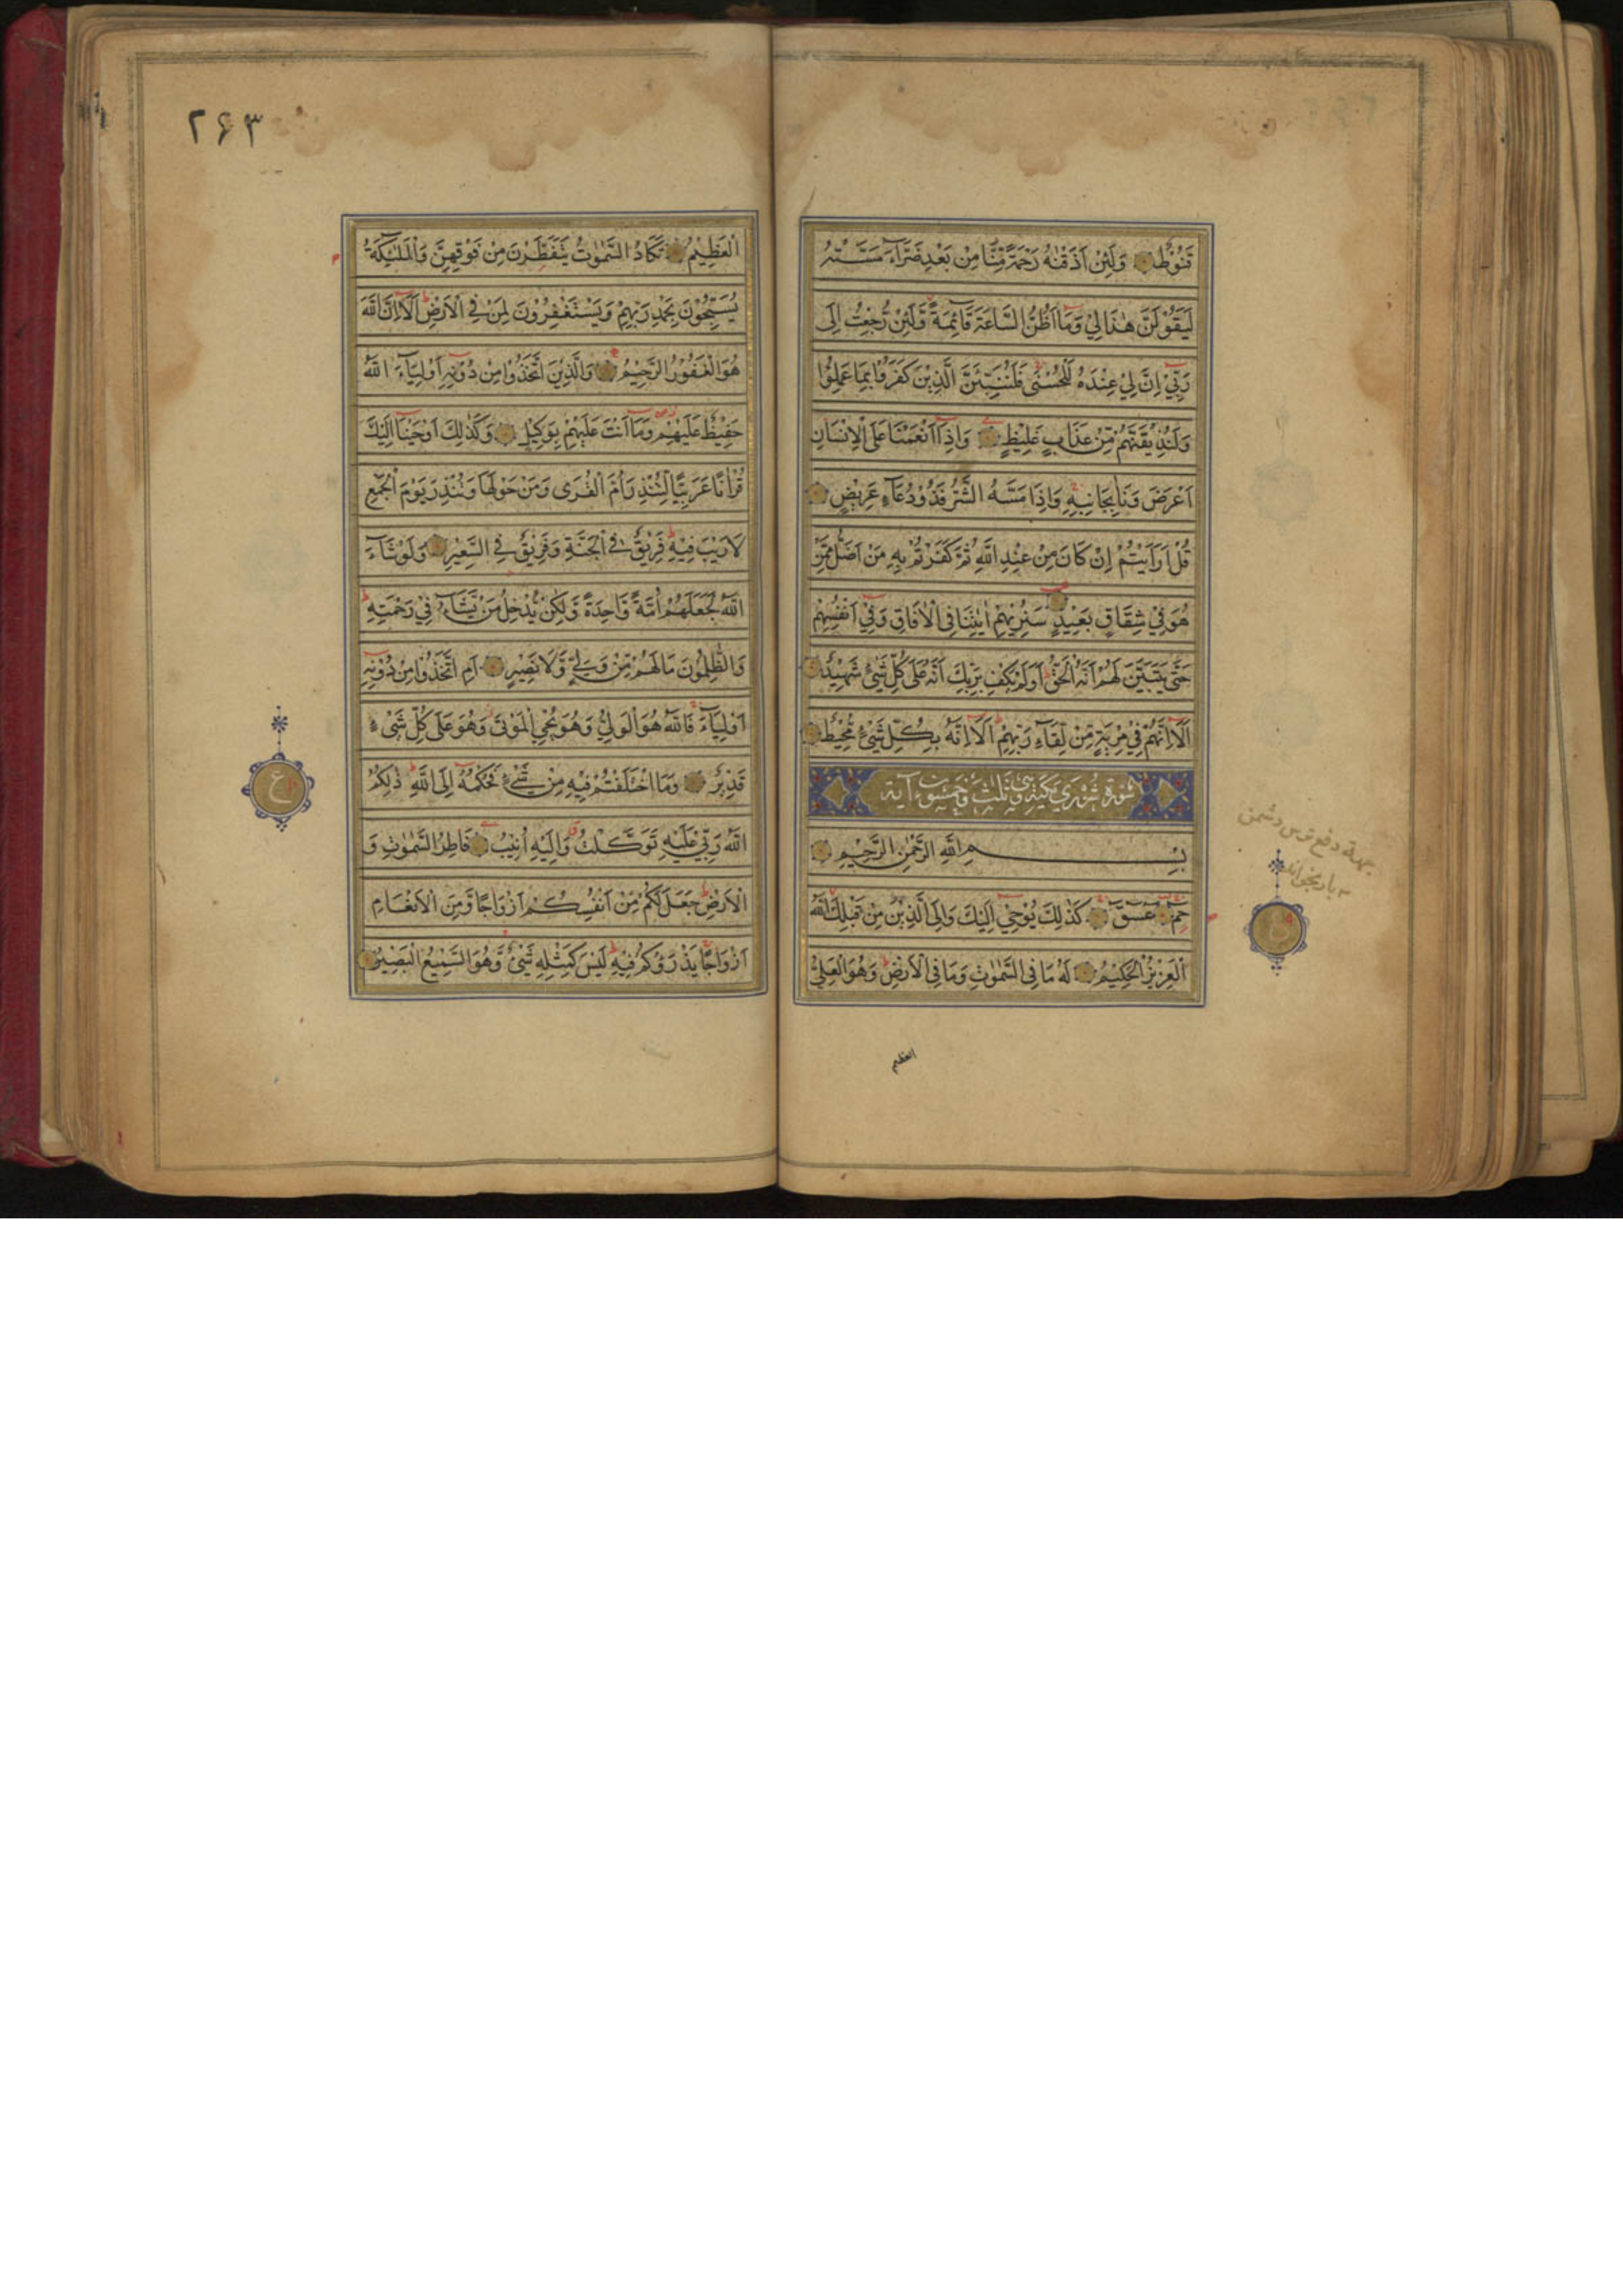 قَنُوْطٌ وَلَئِنْ اَذَقْنٰهُ رَحْمَةً مِّنَّا مِنْ بَعْدِ ضَرَّآءَ مَسَّتْهُ
لَيَقُوْلَنَّ هٰذَا لِيْ وَمَا اَظُنُّ السَّاعَةَ قَآئِمَةً وَّلَئِنْ رُّجِعْتُ اِلٰى
رَبِّيْ اِنَّ لِيْ عِنْدَهُ لَلْحُسْنٰى فَلَنُنَبِّئَنَّ الَّذِيْنَ كَفَرُوْا بِمَا عَمِلُوْا
وَلَنُذِيْقَنَّهُمْ مِّنْ عَذَابٍ غَلِيْظٍ وَاِذَا اَنْعَمْنَا عَلَى الْاِنْسَانِ
اَعْرَضَ وَنَاٰ بِجَانِبِهِ وَاِذَا مَسَّهُ الشَّرُّ فَذُوْ دُعَآءٍ عَرِيْضٍ
قُلْ اَرَاَيْتُمْ اِنْ كَانَ مِنْ عِنْدِ اللّٰهِ ثُمَّ كَفَرْتُمْ بِهِ مَنْ اَضَلُّ مِمَّنْ
هُوَ فِيْ شِقَاقٍ بَعِيْدٍ سَنُرِيْهِمْ اٰيٰتِنَا فِى الْاٰفَاقِ وَفِيْ اَنْفُسِهِمْ
حَتّٰى يَتَبَيَّنَ لَهُمْ اَنَّهُ الْحَقُّ اَوَلَمْ يَكْفِ بِرَبِّكَ اَنَّهُ عَلٰى كُلِّ شَيْئٍ شَهِيْدٌ
اَلَا اِنَّهُمْ فِيْ مِرْيَةٍ مِّنْ لِّقَآءِ رَبِّهِمْ اَلَا اِنَّهُ بِكُلِّ شَيْئٍ مُّحِيْطٌ
سورة شورى مكية وهى ثلث وخمسون آية
بِسْمِ اللّٰهِ الرَّحْمٰنِ الرَّحِيْمِ
حٰمٓ عٓسٓقٓ كَذٰلِكَ يُوْحِيْ اِلَيْكَ وَاِلَى الَّذِيْنَ مِنْ قَبْلِكَ اللّٰهُ
الْعَزِيْزُ الْحَكِيْمُ لَهُ مَا فِى السَّمٰوٰتِ وَمَا فِى الْاَرْضِ وَهُوَ الْعَلِيُّ
العظيم
بجهة دفع ترس دشمن
بار بخواند
ع
٢۶٣
الْعَظِيْمُ تَكَادُ السَّمٰوٰتُ يَتَفَطَّرْنَ مِنْ فَوْقِهِنَّ وَالْمَلٰٓئِكَةُ
يُسَبِّحُوْنَ بِحَمْدِ رَبِّهِمْ وَيَسْتَغْفِرُوْنَ لِمَنْ فِى الْاَرْضِ اَلَا اِنَّ اللّٰهَ
هُوَ الْغَفُوْرُ الرَّحِيْمُ وَالَّذِيْنَ اتَّخَذُوْا مِنْ دُوْنِهِ اَوْلِيَآءَ اللّٰهُ
حَفِيْظٌ عَلَيْهِمْ وَمَا اَنْتَ عَلَيْهِمْ بِوَكِيْلٍ وَكَذٰلِكَ اَوْحَيْنَا اِلَيْكَ
قُرْاٰنًا عَرَبِيًّا لِّتُنْذِرَ اُمَّ الْقُرٰى وَمَنْ حَوْلَهَا وَتُنْذِرَ يَوْمَ الْجَمْعِ
لَا رَيْبَ فِيْهِ فَرِيْقٌ فِى الْجَنَّةِ وَفَرِيْقٌ فِى السَّعِيْرِ وَلَوْ شَآءَ
اللّٰهُ لَجَعَلَهُمْ اُمَّةً وَّاحِدَةً وَّلٰكِنْ يُّدْخِلُ مَنْ يَّشَآءُ فِيْ رَحْمَتِهِ
وَالظّٰلِمُوْنَ مَا لَهُمْ مِّنْ وَّلِيٍّ وَّلَا نَصِيْرٍ اَمِ اتَّخَذُوْا مِنْ دُوْنِهِ
اَوْلِيَآءَ فَاللّٰهُ هُوَ الْوَلِيُّ وَهُوَ يُحْيِ الْمَوْتٰى وَهُوَ عَلٰى كُلِّ شَيْءٍ
قَدِيْرٌ وَمَا اخْتَلَفْتُمْ فِيْهِ مِنْ شَيْءٍ فَحُكْمُهُ اِلَى اللّٰهِ ذٰلِكُمُ
اللّٰهُ رَبِّيْ عَلَيْهِ تَوَكَّلْتُ وَاِلَيْهِ اُنِيْبُ فَاطِرُ السَّمٰوٰتِ وَ
الْاَرْضِ جَعَلَ لَكُمْ مِّنْ اَنْفُسِكُمْ اَزْوَاجًا وَّمِنَ الْاَنْعَامِ
اَزْوَاجًا يَذْرَؤُكُمْ فِيْهِ لَيْسَ كَمِثْلِهِ شَيْئٌ وَّهُوَ السَّمِيْعُ الْبَصِيْرُ
ع